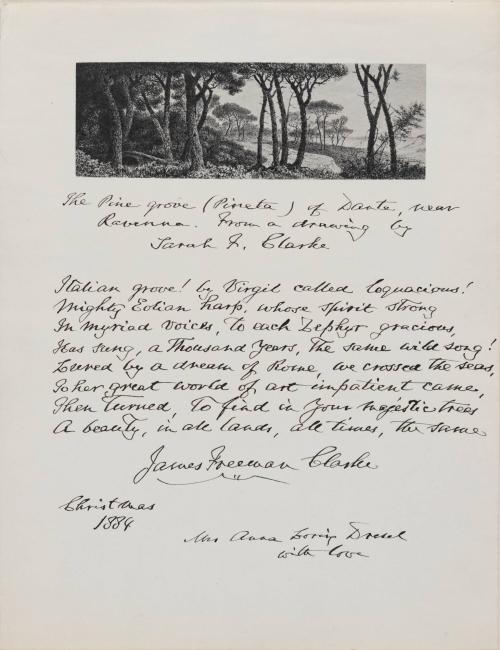 The Pine grove (Pineta) of Dante, near
Ravenna. From a drawing by
Sarah F. Clarke
Italian grove! by Virgil called loquacious!
Mighty Eolian harp, whose spirit strong
In myriad voices, to each Zephyr gracious,
Has sung, a Thousand Years, the same wild song!
Lured by a dream of Rome, we crossed the seas,
To her great world of art impatient came,
Then turned, To find in your majestic trees
A beauty, in all lands, all times, the same
James Freeman Clarke
Christmas
1884
Mrs Anna Loring Dresel
with love